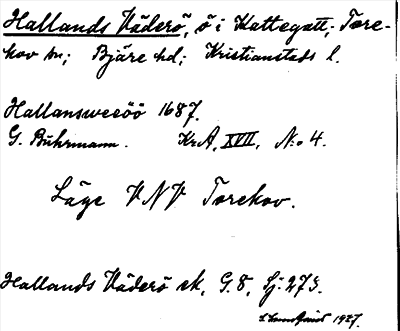 Hallands Väderö, ö i Kattegatt; Tore-
kov sn; Bjäre hd; Kristianstads l.
Hallansweeöö 1687.
G. Buhrmann. KrA, XVII, N:o 4.
Läge VNV Torekov.
Hallands Väderö sk, G.8, Sj. 273.
1927.